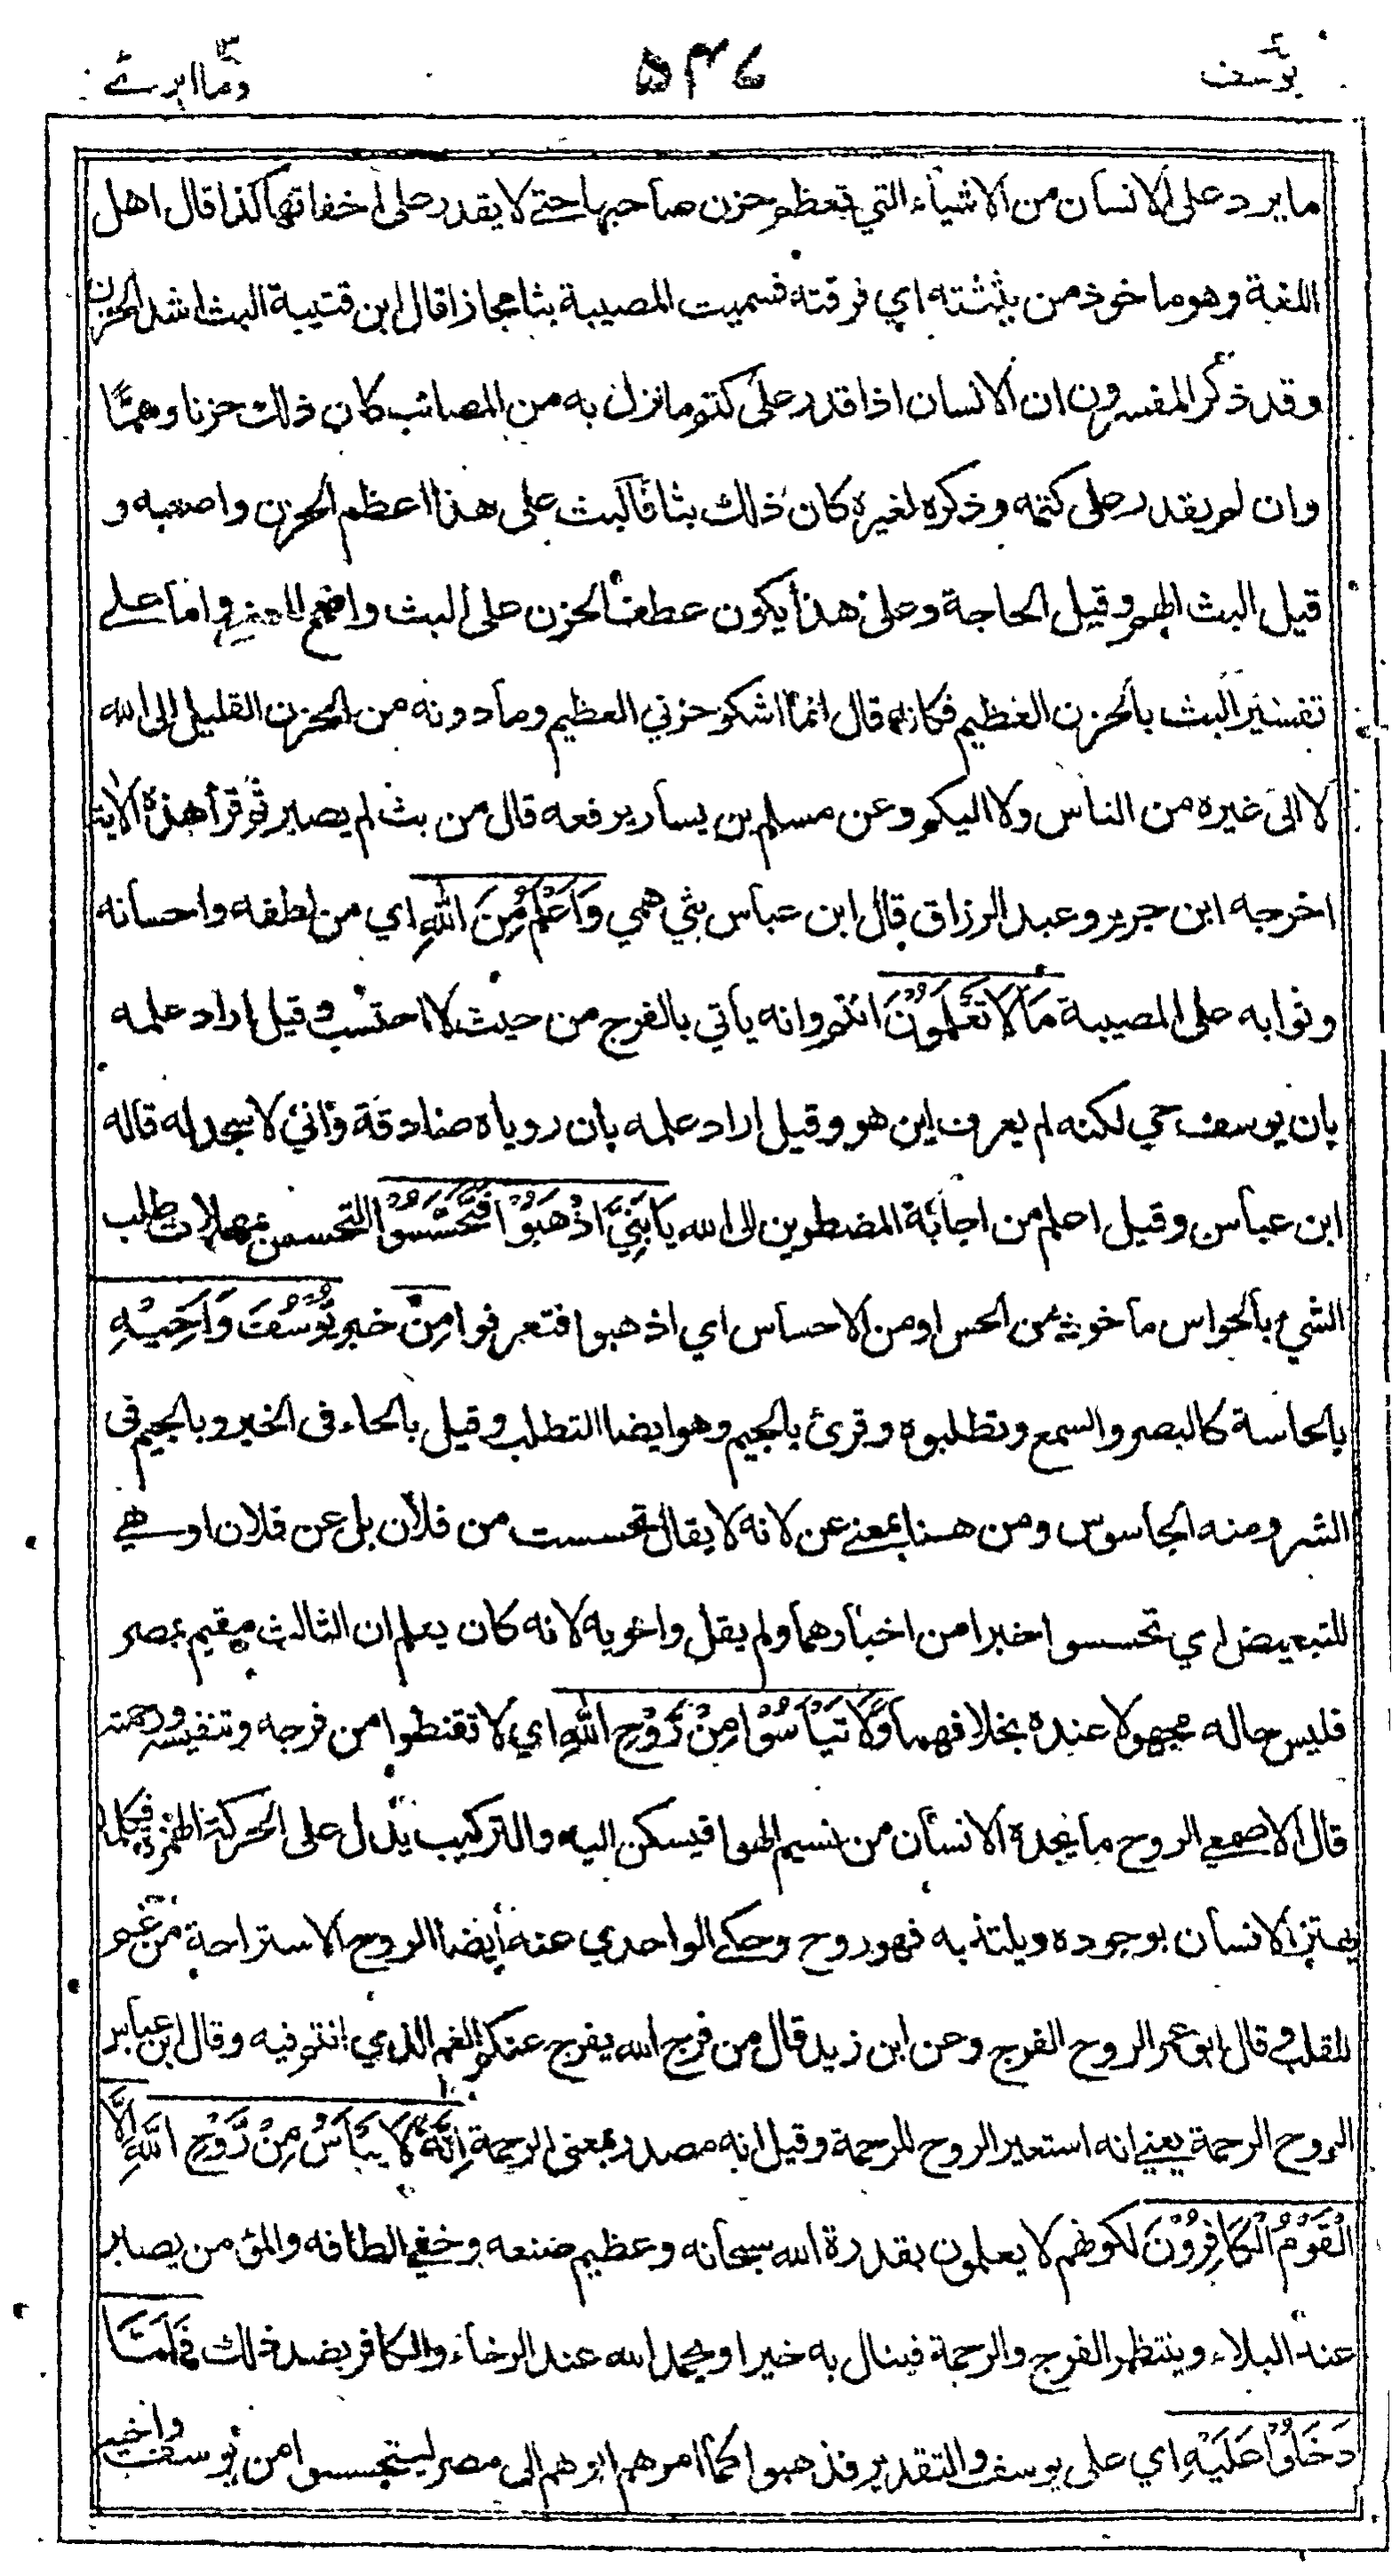 يوسف ١٢
٥٤٦
وما ابرئ ١٣
ما يرد على الانسان من الاشياء التي تعظم حزن صاحبها حتى لا يقدر على اخفائها كذا قال اهل
اللغة وهو ماخوذ من بثثته اي فرقته فسميت المصيبة بثا مجازا قال ابن قتيبة البث اشد الحزن
وقد ذكر المفسرون ان الانسان اذا قدر على كتم ما نزل به من المصائب كان ذلك حزنا وهمًّا
وان لم يقدر على كتمه وذكره لغيره كان ذلك بثا فالبث على هذا اعظم الحزن واصعبه و
قيل البث الهم وقيل الحاجة وعلى هذا يكون عطف الحزن على البث واضح المعنى واما على
تفسير البث بالحزن العظيم فكانه قال انما اشكو حزني العظيم وما دونه من الحزن القليل الى الله
لا الى غيره من الناس ولا اليكم وعن مسلم بن يسار يرفعه قال من بث لم يصبر ثم قرأ هذه الاية
اخرجه ابن جرير وعبد الرزاق قال ابن عباس بثي همي وَاَعْلَمُ مِنَ اللهِ اي من لطفه واحسانه
وثوابه على المصيبة مَا لَا تَعْلَمُوْنَ انتم وانه يأتي بالفرج من حيث لا احتسب وقيل اراد علمه
بان يوسف حي لكنه لم يعرف اين هو وقيل اراد علمه بان روياه صادقة واني لاسجد له قاله
ابن عباس وقيل اعلم من اجابة المضطرين الى الله يَا بَنِيَّ اذْهَبُوْا فَتَحَسَّسُوْا التحسس بمهملات طلب
الشيء بالحواس ماخوذ من الحس او من الاحساس اي اذهبوا فتعرفوا مِنْ خبر يُوْسُفَ وَاَخِيْهِ
بالحاسة كالبصر والسمع وتطلبوه وقرئ بالجيم وهو ايضا التطلب وقيل بالحاء في الخير وبالجيم في
الشر ومنه الجاسوس ومن هنا بمعنى عن لانه لا يقال تحسست من فلان بل عن فلان او هي
للتبعيض اي تحسسوا خبرا من اخبارهما ولم يقل واخويه لانه كان يعلم ان الثالث مقيم بمصر
فليس حاله مجهولا عنده بخلافهما وَلَا تَيْأَسُوْا مِنْ رَّوْحِ اللهِ اي لا تقنطوا من فرجه وتنفيسه ورحمته
قال الاصمعي الروح ما يجده الانسان من نسيم الهوا فيسكن اليه والتركيب يدل على الحركة والهزة فكلما
يهتز الانسان بوجوده ويلتذ به فهو روح وحكى الواحدي عنه أيضا الروح الاستراحة من غم
القلب وقال ابو عمر الروح الفرج وعن ابن زيد قال من فرج الله يفرج عنكم الغم الذي انتم فيه وقال ابن عباس
الروح الرحمة يعني انه استعير الروح للرحمة وقيل انه مصدر بمعنى الرحمة اِنَّهٗ لَا يَيْأَسُ مِنْ رَّوْحِ اللهِ اِلَّا
الْقَوْمُ الْكَافِرُوْنَ لكونهم لا يعلمون بقدرة الله سبحانه وعظيم صنعه وخفي الطافه والمؤمن يصبر
عند البلاء وينتظر الفرج والرحمة فينال به خيرا ويحمد الله عند الرخاء والكافر بضد ذلك فَلَمَّا
دَخَلُوْا عَلَيْهِ اي على يوسف والتقدير فذهبوا كما امرهم ابوهم الى مصر ليتحسسوا من يوسف واخيه